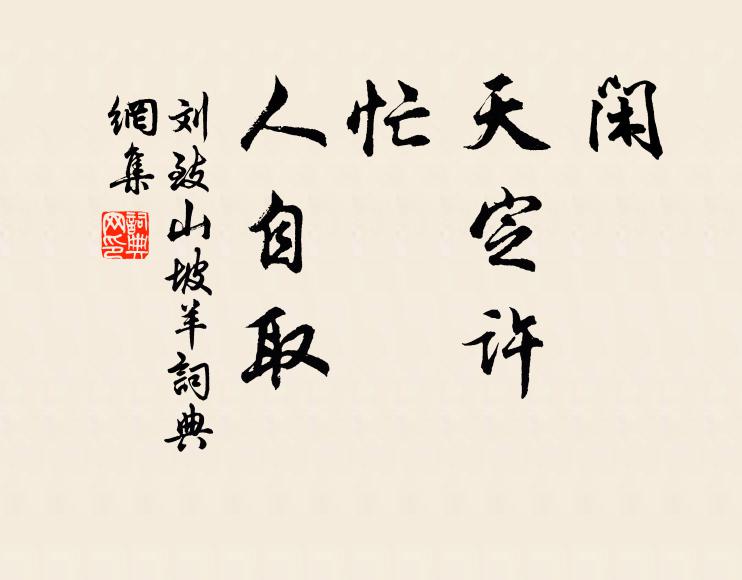 闲
天定许
忙
人自取
刘致山坡羊詞典
網集
詞典
网印